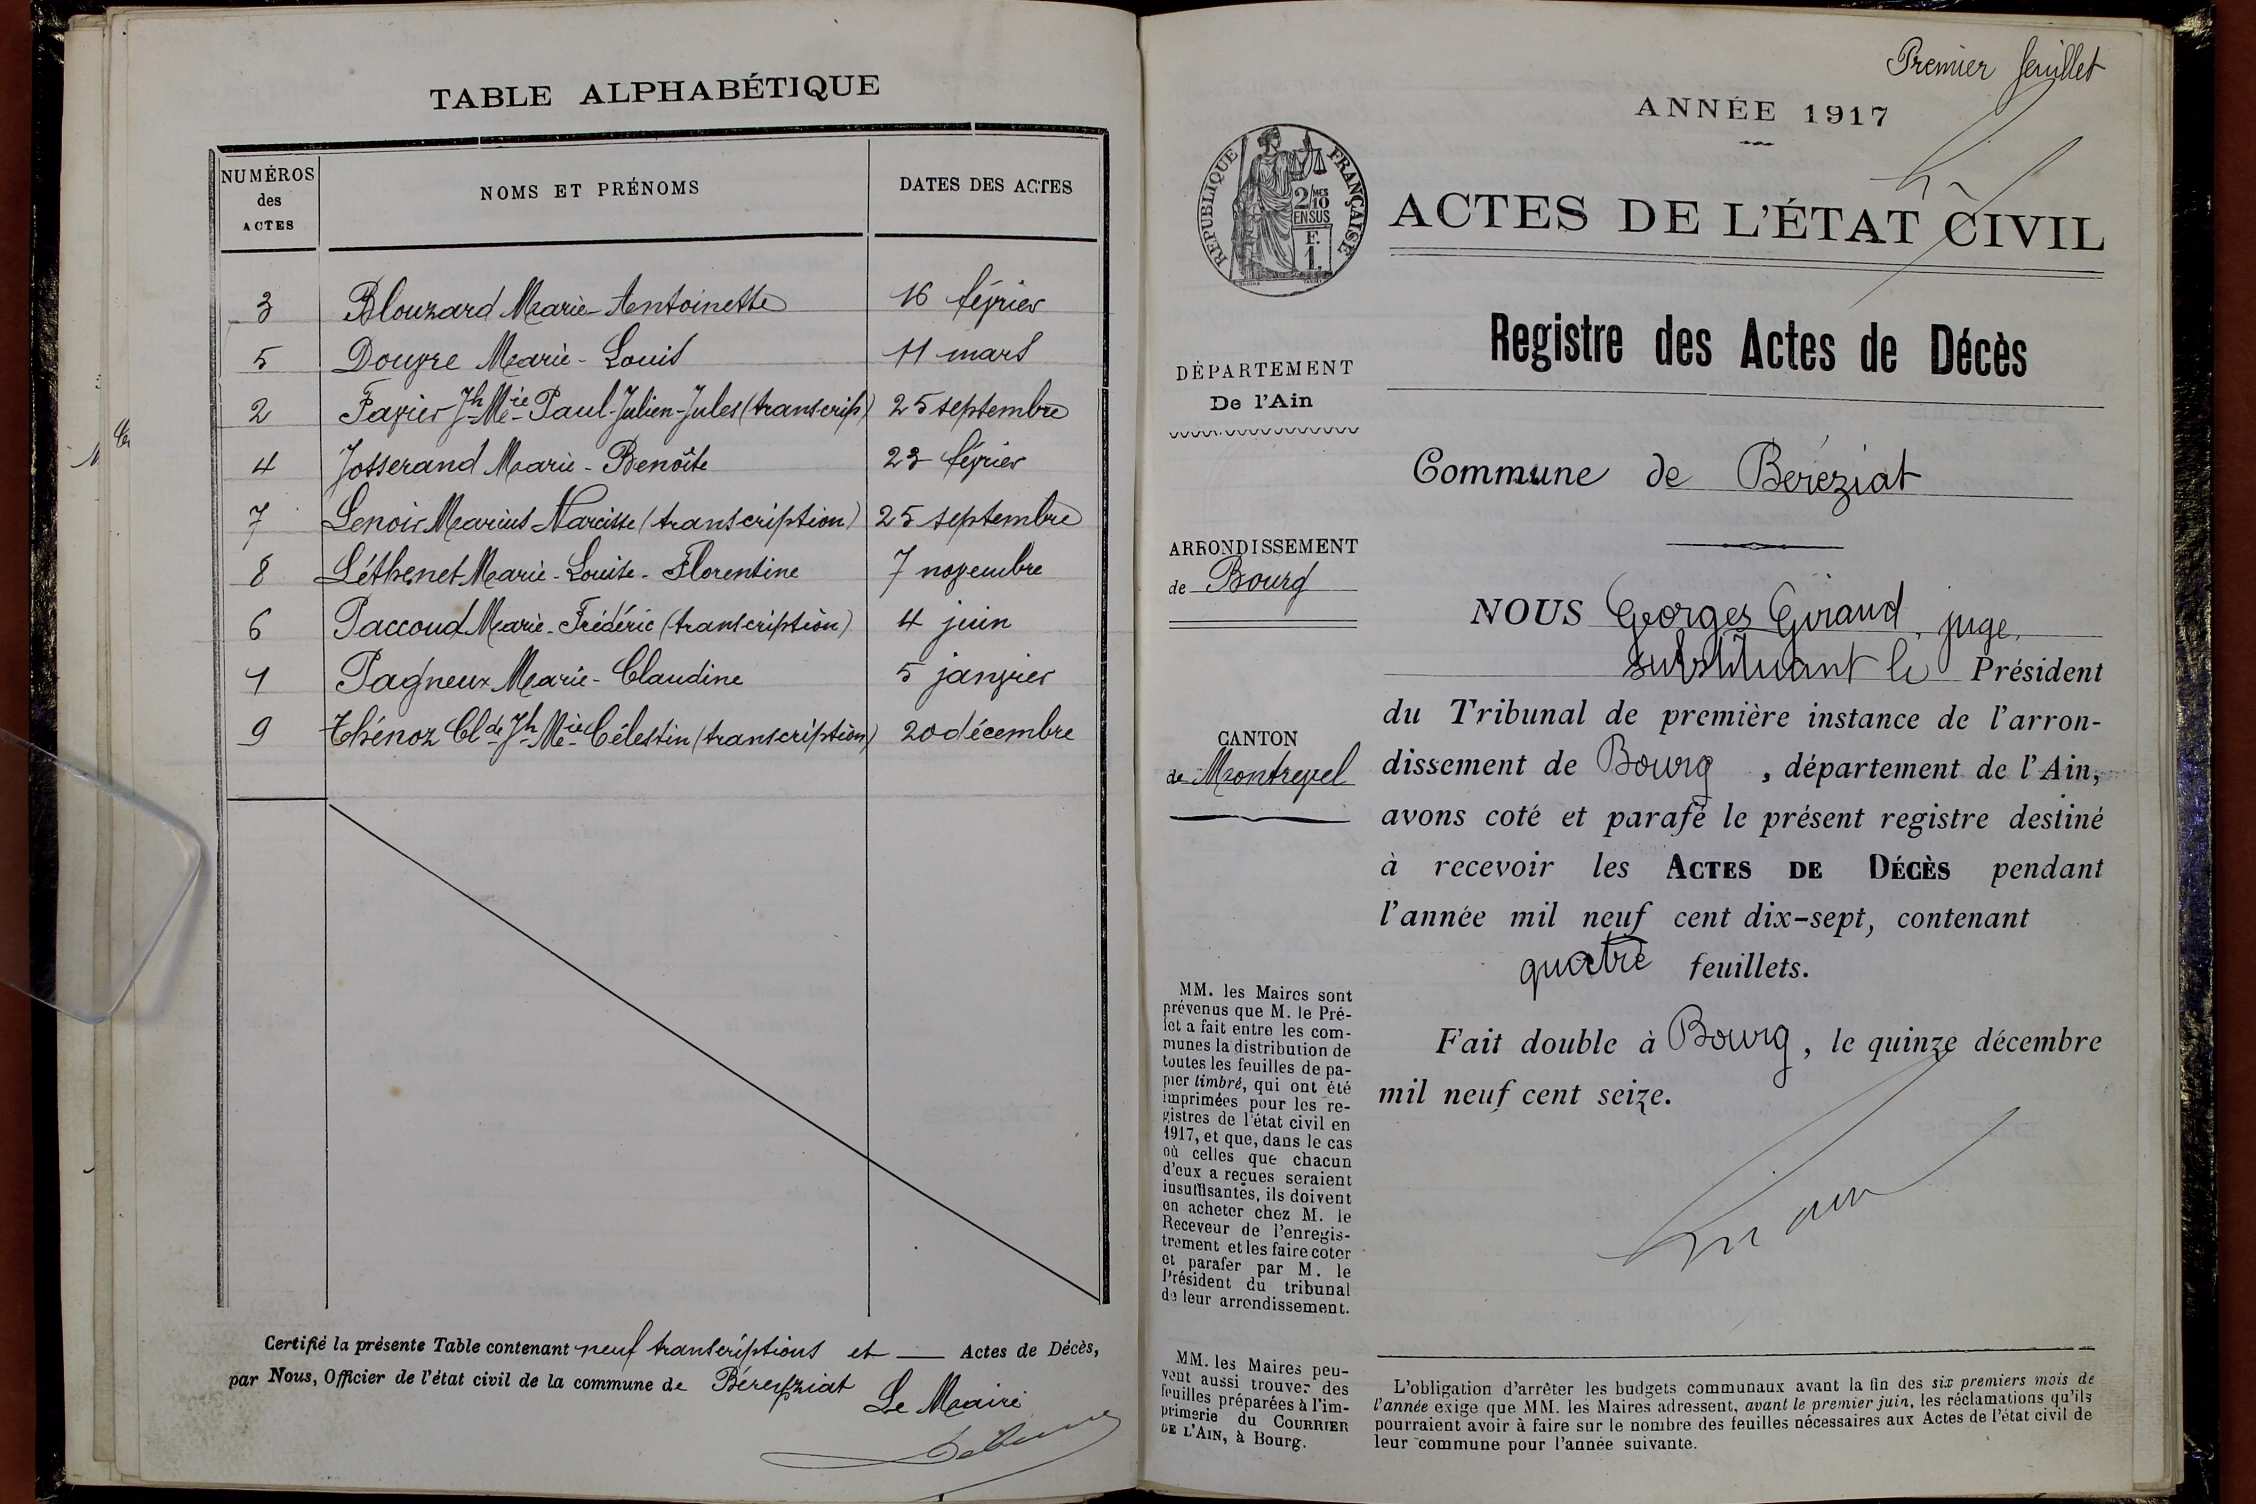 TABLE ALPHABÉTIQUE
NUMÉROS des ACTES
NOMS ET PRÉNOMS
DATES DES ACTES
3 Blouzard Marie-Antoinette 16 février
5 Douvre Marie-Louis 11 mars
2 Favier Jh Mie Paul-Julien-Jules (transcrip) 25 septembre
4 Josserand Marie-Benoîte 23 février
7 Lenoir Marius Narcisse (transcription) 25 septembre
8 Léthenet Marie-Louise-Florentine 7 novembre
6 Paccoud Marie-Frédéric (transcription) 4 juin
1 Pagneux Marie-Claudine 5 janvier
9 Thénoz Clde Jh Mie Célestin (transcription) 20 décembre
Certifié la présente Table contenant neuf transcriptions et — Actes de Décès,
par Nous, Officier de l'état civil de la commune de Béreyziat
Le Maire
Premier feuillet
ANNÉE 1917
RÉPUBLIQUE FRANÇAISE
2/10 MES
EN SUS
F.
1.
ACTES DE L'ÉTAT CIVIL
Registre des Actes de Décès
DÉPARTEMENT
De l'Ain
Commune de Béréziat
ARRONDISSEMENT
de Bourg
NOUS Georges Giraud, juge,
substituant le Président
du Tribunal de première instance de l'arron-
CANTON
de Montrevel
dissement de Bourg, département de l'Ain,
avons coté et parafé le présent registre destiné
à recevoir les ACTES DE DÉCÈS pendant
l'année mil neuf cent dix-sept, contenant
quatre feuillets.
Fait double à Bourg, le quinze décembre
mil neuf cent seize.
MM. les Maires sont
prévenus que M. le Pré-
fet a fait entre les com-
munes la distribution de
toutes les feuilles de pa-
pier timbré, qui ont été
imprimées pour les re-
gistres de l'état civil en
1917, et que, dans le cas
où celles que chacun
d'eux a reçues seraient
insuffisantes, ils doivent
en acheter chez M. le
Receveur de l'enregis-
trement et les faire coter
et parafer par M. le
Président du tribunal
de leur arrondissement.
MM. les Maires peu-
vent aussi trouver des
feuilles préparées à l'im-
primerie du COURRIER
DE L'AIN, à Bourg.
L'obligation d'arrêter les budgets communaux avant la fin des six premiers mois de
l'année exige que MM. les Maires adressent, avant le premier juin, les réclamations qu'ils
pourraient avoir à faire sur le nombre des feuilles nécessaires aux Actes de l'état civil de
leur commune pour l'année suivante.